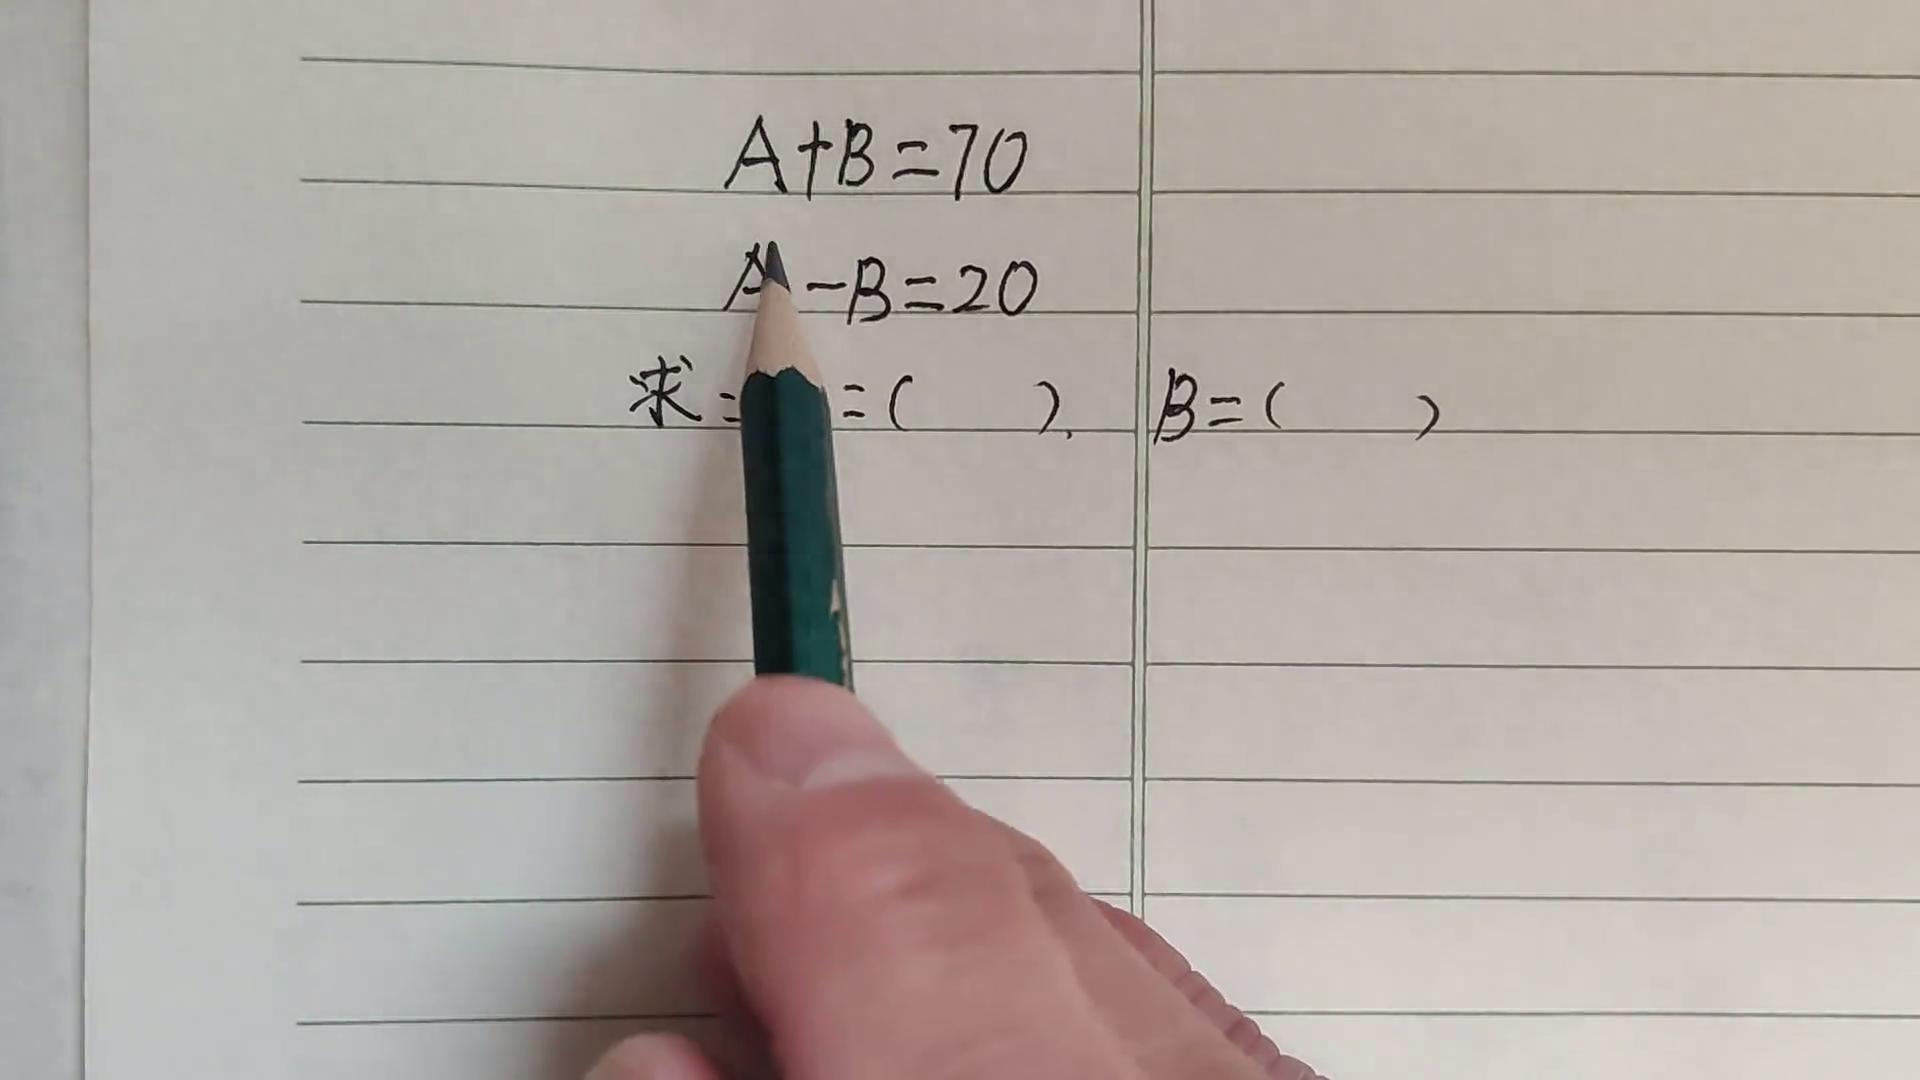 A+B=70
A-B=20
求: =( ), B=( )